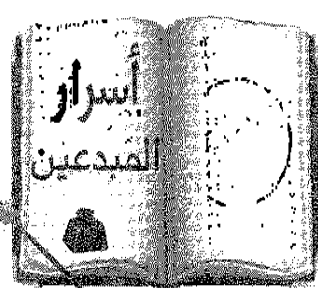 أسرار
المبدعين